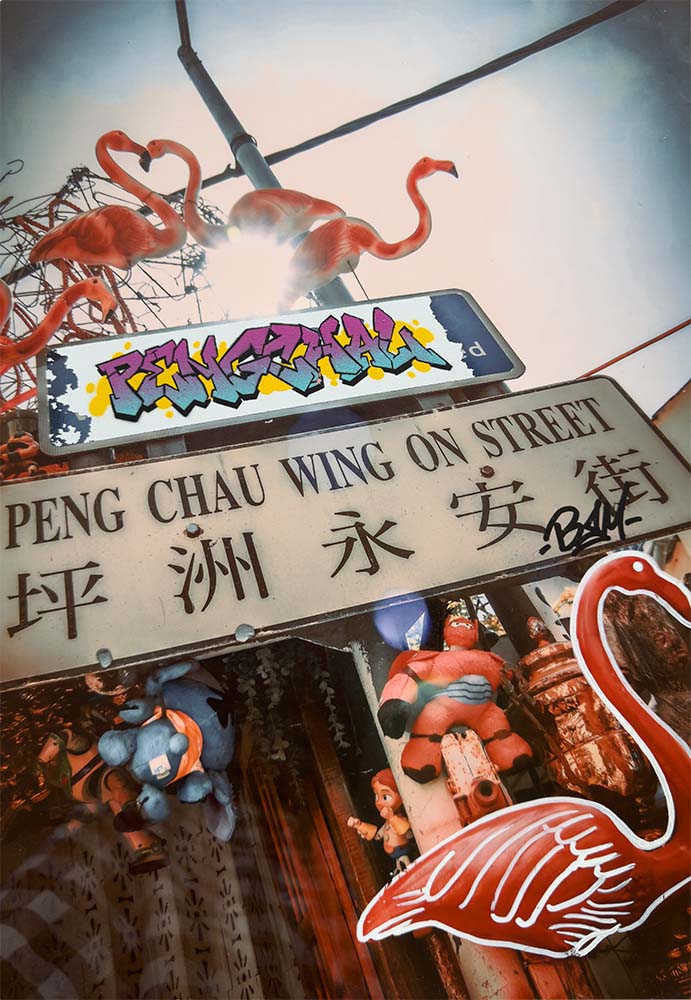 PENGCHAU
PENG CHAU WING ON STREET
坪洲永安街
BAM